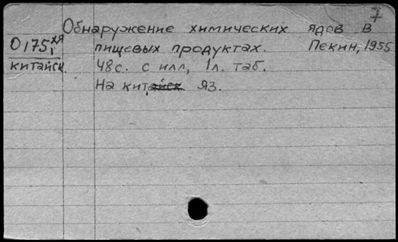 7
Обнаружение химических ядов в
О175 хя пищевых продуктах. Пекин, 1955
китайск. 48с. с илл, 1л. таб.
На кит. яз.